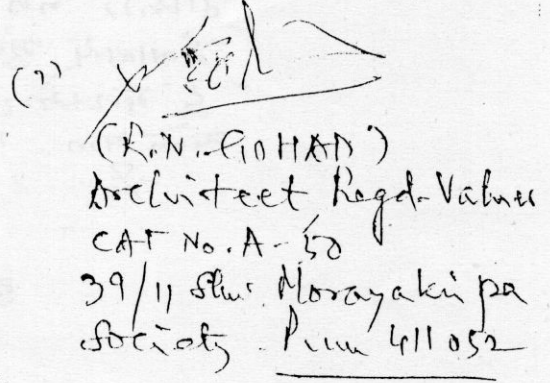 (R.N. GOHAD)
Architect Regd. Valuer
CAT No. A-50
39/11 Shri Morayakripa
Society. Pune 411052